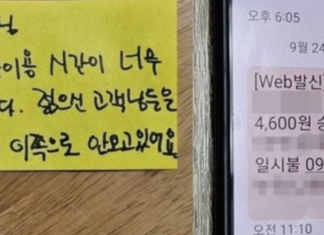 님
이용 시간이 너무
다. 젊으신 고객님들은
이쪽으로 안오고있어요
오후 6:05
9월 24
[Web발신]
4,600원 승
일시불 09
오전 11:10